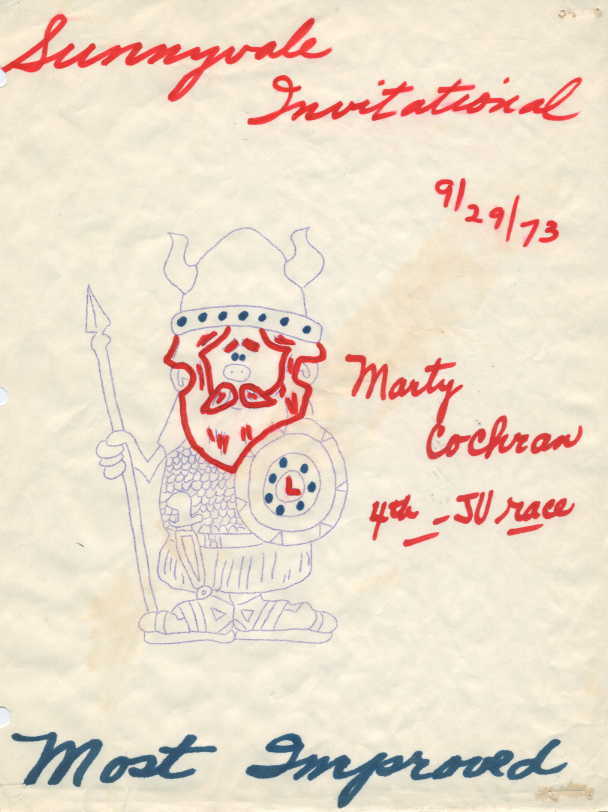 Sunnyvale
Invitational
9/29/73
Marty
Cochran
4th - JV race
L
Most Improved